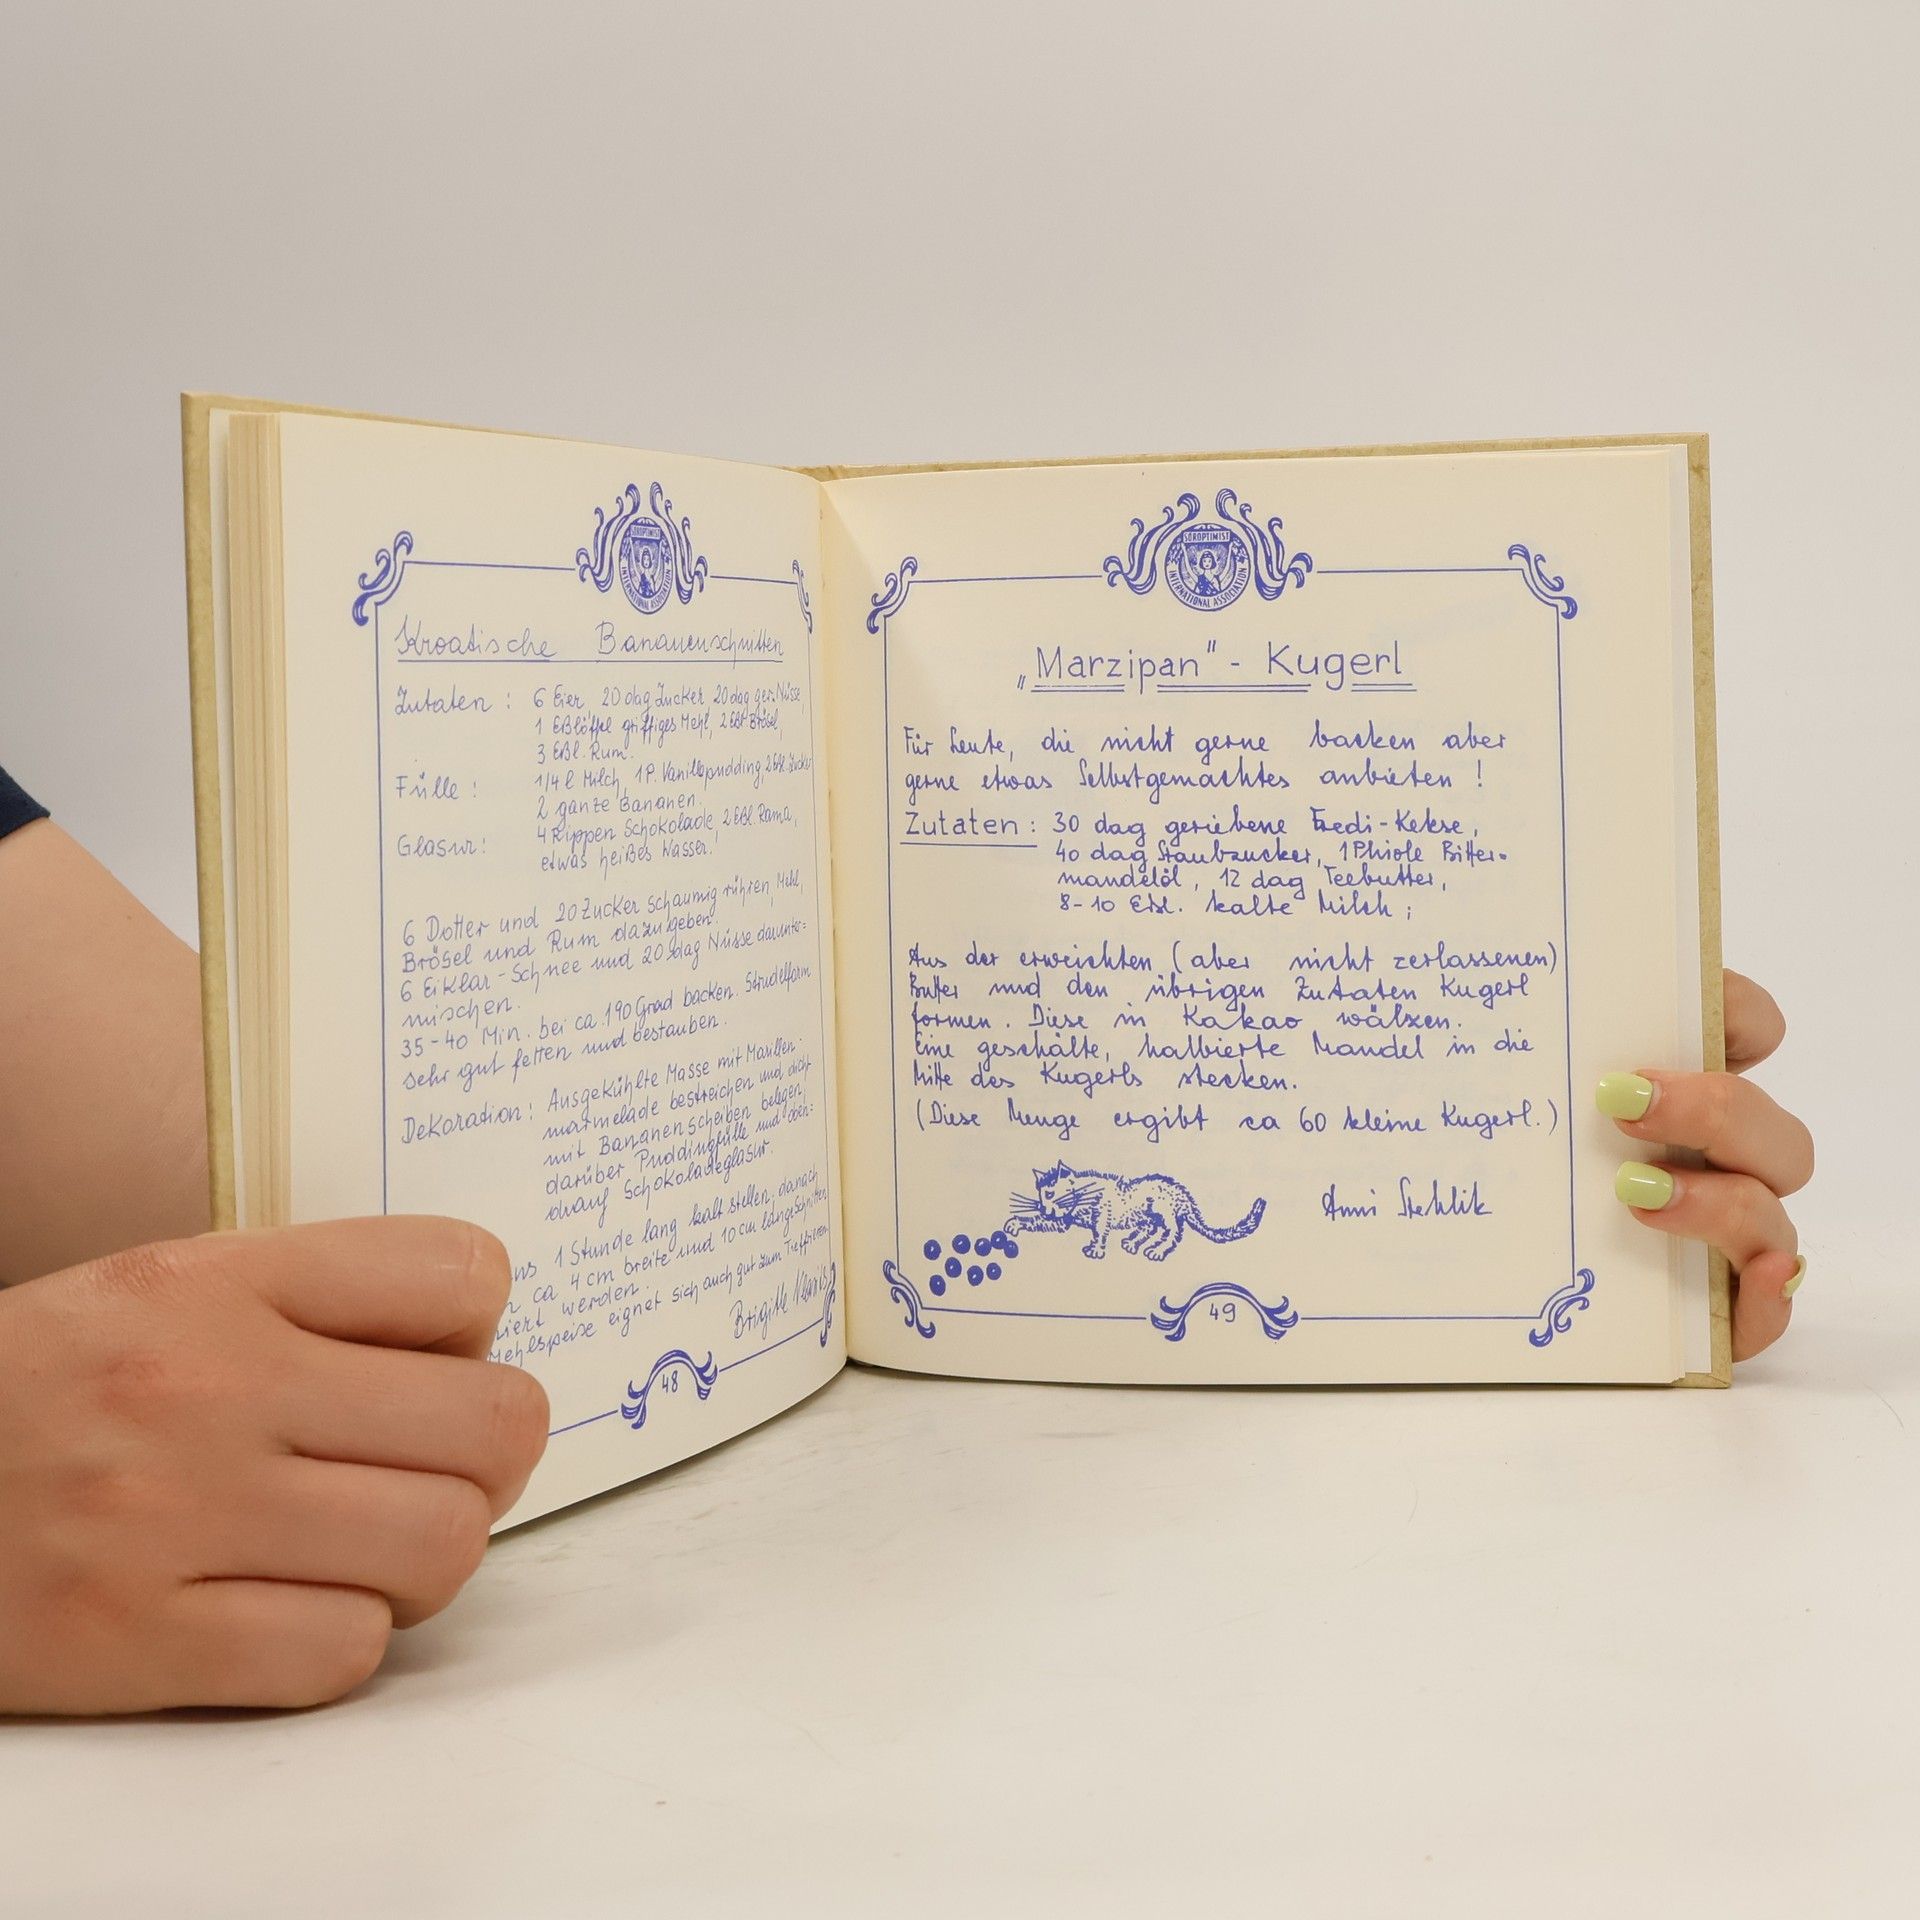 SOROPTIMIST
INTERNATIONAL ASSOCIATION
Kroatische Bananenschnitten
Zutaten : 6 Eier, 20 dag Zucker 20 dag ger. Nüsse,
1 Eßlöffel griffiges Mehl, 2 Eßl Brösel,
3 Eßl. Rum.
Fülle : 1/4 l Milch, 1 P. Vanillepudding, 2 Eßl. Zucker
2 ganze Bananen.
Glasur : 4 Rippen Schokolade, 2 Eßl. Rama,
etwas heißes Wasser.
6 Dotter und 20 Zucker schaumig rühren, Mehl,
Brösel und Rum dazugeben.
6 Eiklar-Schnee und 20 dag Nüsse darunter=
mischen.
35-40 Min. bei ca. 190 Grad backen. Strudelform
sehr gut fetten und bestauben.
Dekoration : Ausgekühlte Masse mit Marillen-
marmelade bestreichen und dicht
mit Bananenscheiben belegen,
darüber Puddingfülle und oben=
drauf Schokoladeglasur.
1 Stunde lang kalt stellen, danach
ca 4 cm breite und 10 cm lange Schnitten
werden.
Mehlspeise eignet sich auch gut zum Tieffrieren
Brigitte
48
SOROPTIMIST
INTERNATIONAL ASSOCIATION
„Marzipan" - Kugerl
Für Leute, die nicht gerne backen aber
gerne etwas Selbstgemachtes anbieten !
Zutaten : 30 dag geriebene Fredi-Kekse,
40 dag Staubzucker, 1 Phiole Bitter-
mandelöl, 12 dag Teebutter,
8-10 Eßl. kalte Milch ;
Aus der erweichten (aber nicht zerlassenen)
Butter und den übrigen Zutaten Kugerl
formen. Diese in Kakao wälzen.
Eine geschälte, halbierte Mandel in die
Mitte des Kugerls stecken.
(Diese Menge ergibt ca 60 kleine Kugerl.)
Anni Stehlik
49